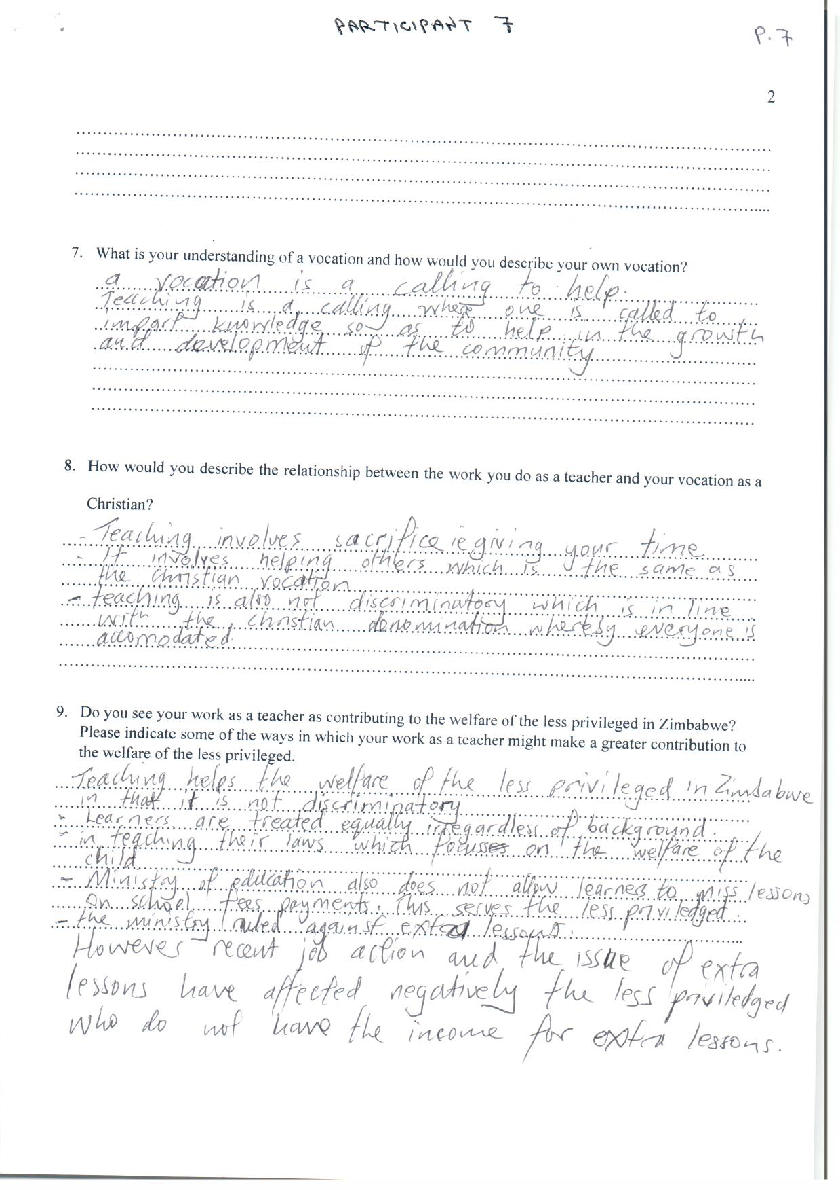 PARTICIPANT 7
P.7
2
7. What is your understanding of a vocation and how would you describe your own vocation?
a vocation is a calling to help.
Teaching is a calling where one is called to
impart knowledge so as to help in the growth
and development of the community
8. How would you describe the relationship between the work you do as a teacher and your vocation as a
Christian?
- Teaching involves sacrifice ie giving your time.
- It involves helping others which is the same as
the Christian vocation
- teaching is also not discriminatory which is in line
with the Christian denomination whereby everyone is
accomodated.
9. Do you see your work as a teacher as contributing to the welfare of the less privileged in Zimbabwe?
Please indicate some of the ways in which your work as a teacher might make a greater contribution to
the welfare of the less privileged.
Teaching helps the welfare of the less privileged in Zimbabwe
in that it is not discriminatory
- Learners are treated equally irregardless of background.
- in teaching their laws which focusses on the welfare of the
child
- Ministry of education also does not allow learners to miss lessons
on school fees payments. This serves the less priviledged.
- the ministry ruled against extra lessons.
However recent job action and the issue of extra
lessons have affected negatively the less priviledged
who do not have the income for extra lessons.